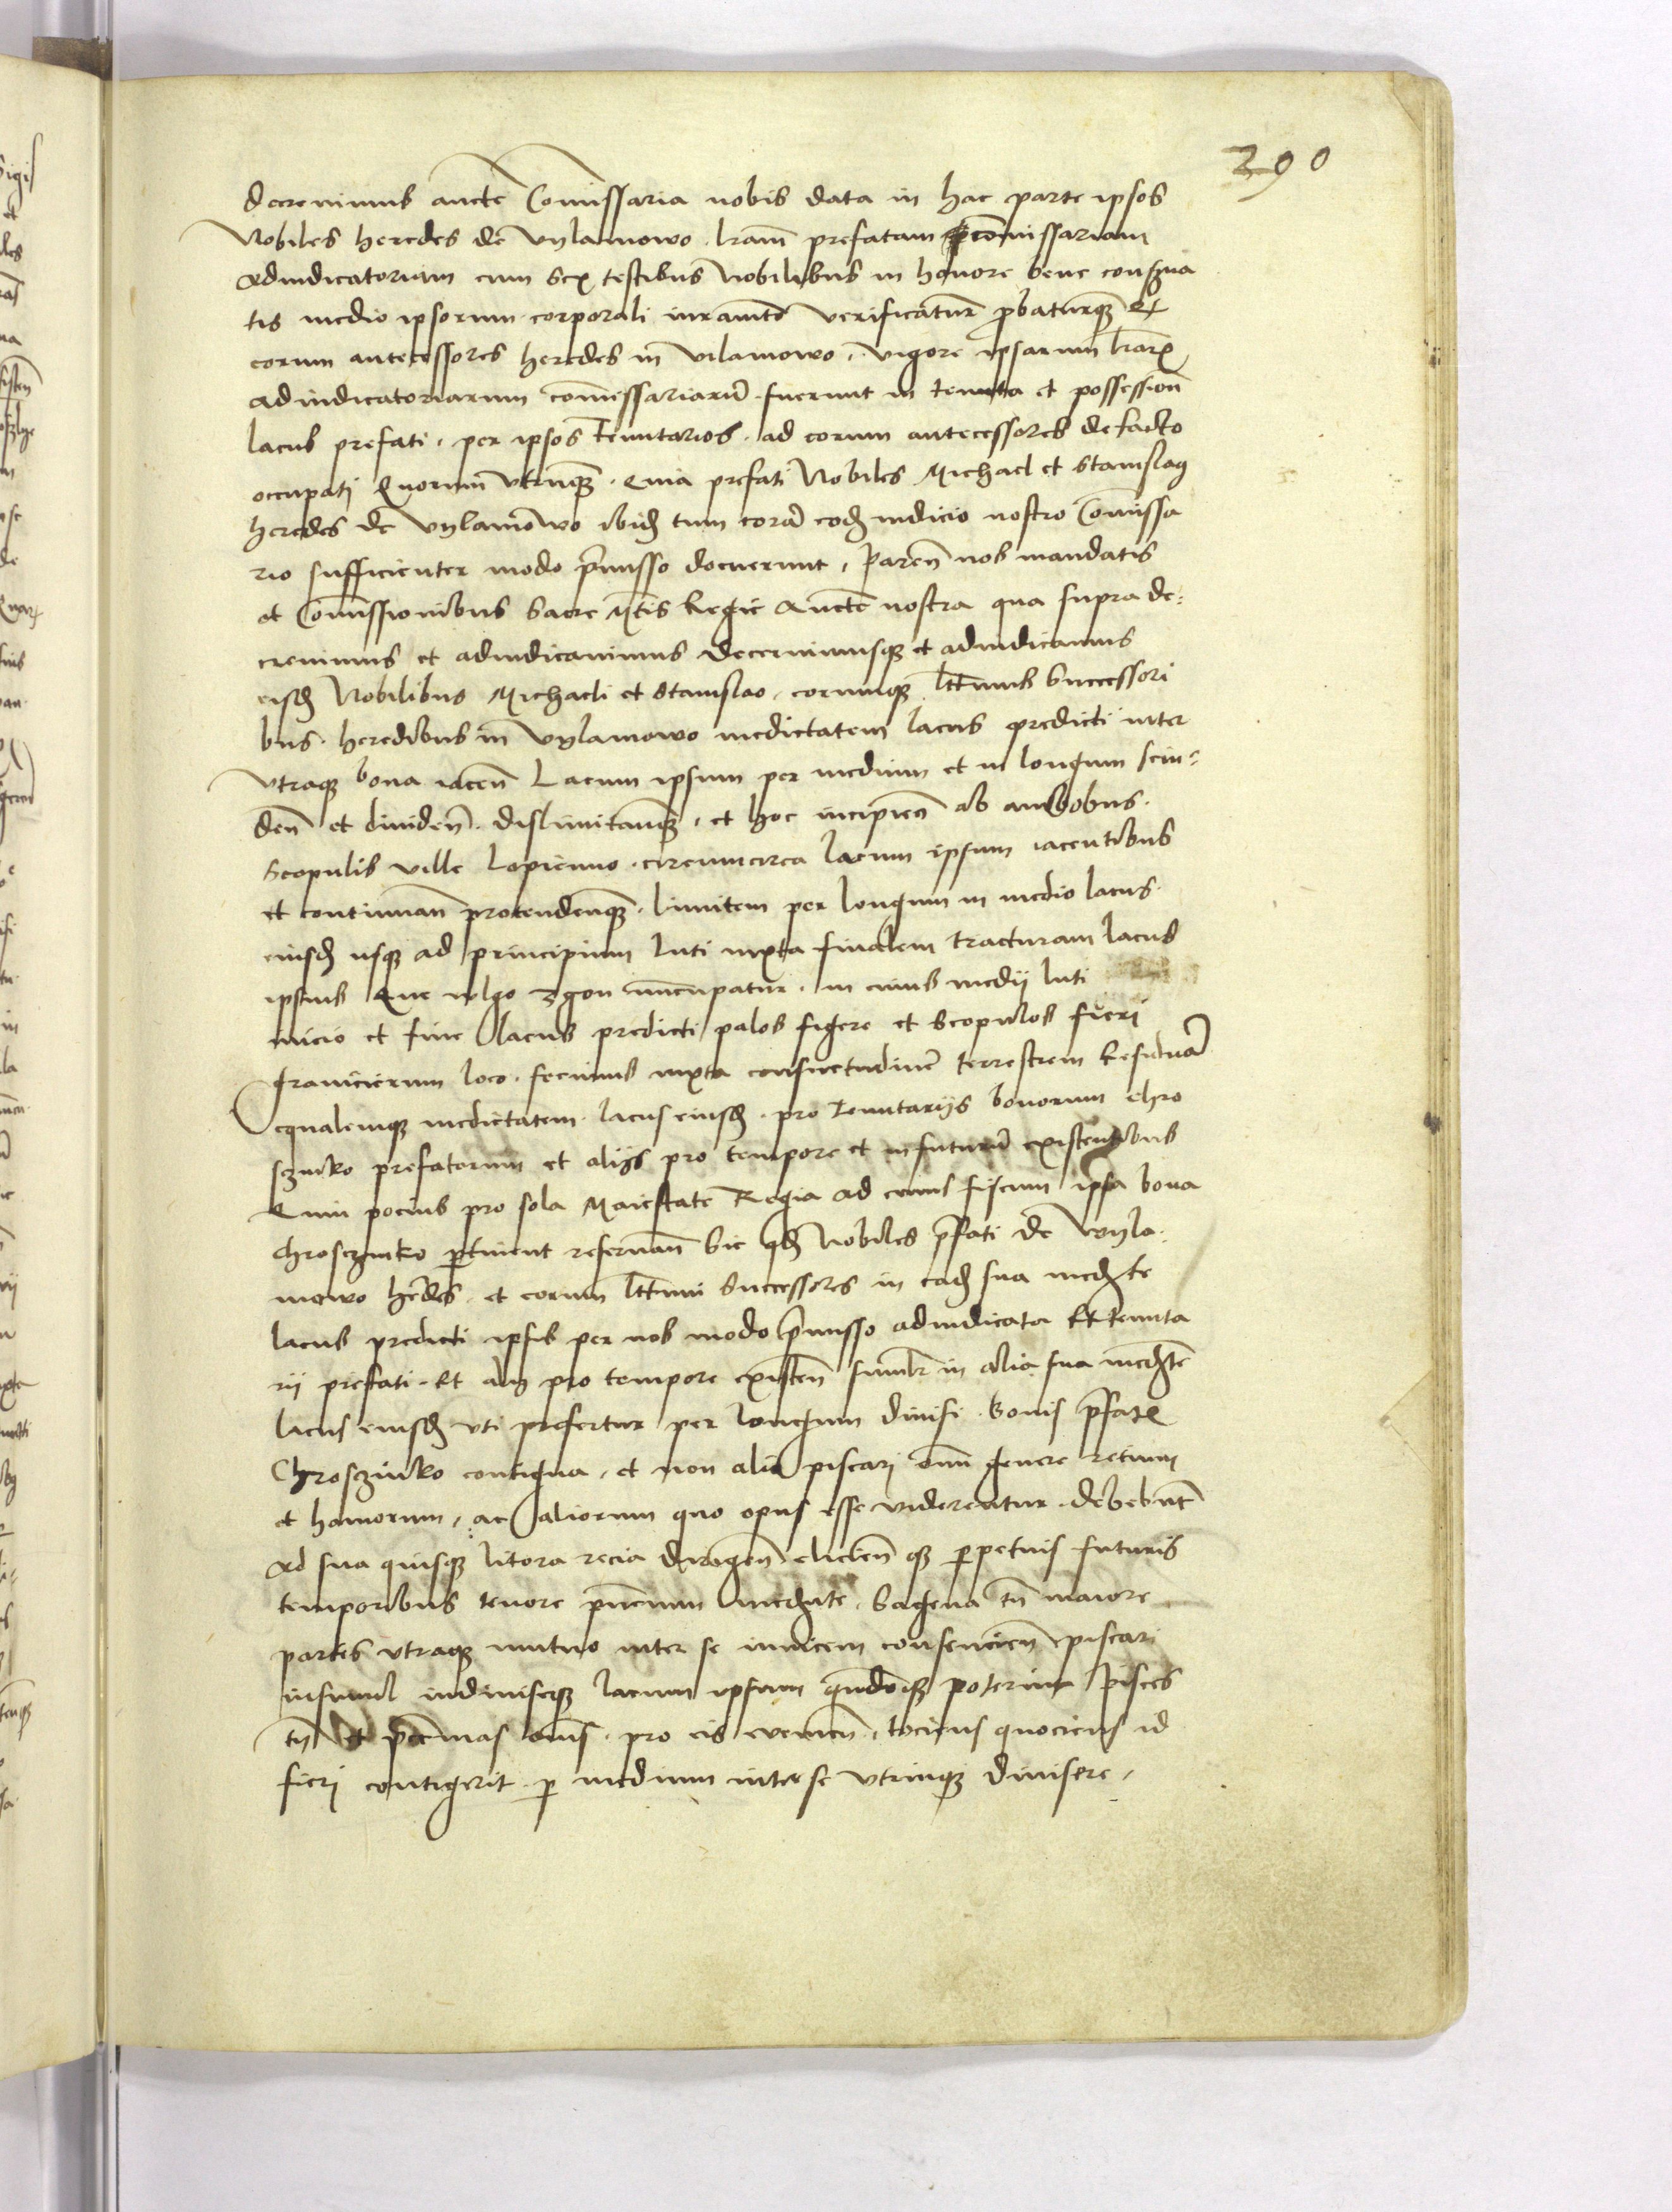 390
decrevimus aucte Comissaria nobis data in hac parte ipsos
Nobiles heredes de Vylamowo lram prefatam comissariam
Adiudicatoriam cum sex testibus Nobilibus in honore bene conserva
tis medio ipsorum corporali iuramto verificaturū probaturūq; Et
eorum antecessores heredes in Vilamowo, vigore ipsarum lrarū
adiudicatoriarum comissariarū fuerunt in tenuta et possession
lacus prefati, per ipsos Tenutarios, ad eorum antecessores defacto
occupati Quorum utrumq; Quia prefati Nobiles Michael et Stanislaus
heredes de Vylamowo ibid tum corā eod iudicio nostro Comissa
rio sufficienter modo pmisso docuerunt, Paren nos mandatis
et Comissionibus Sacre Mtis Regie Aucte nostra qua supra de-
crevimus et adiudicavimus Decernimusq; et adiudicamus
eisd Nobilibus Michaeli et Stanislao, eorumq; lttimis Successori
bus, heredibus in Vylamowo medietatem lacus predicti inter
Utraq; bona iacen Lacum ipsum per medium et in longum scin-
den et dividen, dislimitanq; et hoc incipien ab ambobus
Scopulis ville Lopienno circumcirca lacum ipsum iacentibus
et continuan protendenq; limitem per longum in medio lacus
eiusd usq; ad principium luti iuxta finalem tracturam lacus
ipsius Que vlgo zgon nuncupatur, in cuius medii luti
inicio et fine lacus predicti palos figere et Scopulos fieri
Granicierum loco fecimus iuxta consuetudinē terrestrem Residuā
equalemq; medietatem lacus eiusd pro Tenutariis bonorum Chro
szinko prefatorum et aliis pro tempore et in futurū existentibus
Quin pocius pro sola Maiestate Regia ad cuius fiscum ipsa bona
Chrosczinko ptinent reservan Sic qd Nobiles pfati de Wyla
mowo heredes, et eorum lttimi Successores in ead sua medte
lacus predicti ipsis per nos modo pmisso adiudicata Et tenuta
rii prefati Et alij pro tempore existen similr in alia sua medte
lacus eiusd uti prefertur per longum divisi, bonis pfatis
Chrosczinko contigua, et non alia piscari omi genere retium
et hamorum, ac aliorum quo opus esse videreatur debebunt
Ad sua quisq; litora recia dirigen elicien q; ppetuis futuris
temporibus tenore pncium mediante, Sagena tn maiore
partes utraq; mutuo inter se invicem consencien piscari
insimul indivisiq; lacum ipsum quandocumq; poterint Pisces
tn et pecunias omes, pro eis evenien, tociens quociens id
fieri contigerit p medium inter se utrinq; divisere,